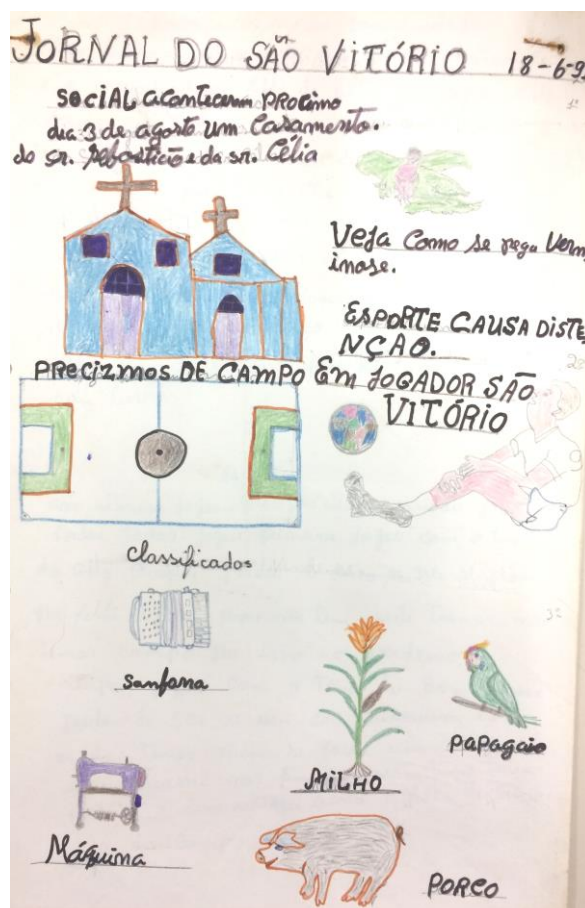 JORNAL DO SÃO VITÓRIO 18-6-9
SOCIAL acontecerum PROCimo
dia 3 de agosto um Casamento.
do sr. Sebastiçio e da sr. Célia
Veja Como se pega Verm
inose.
ESPORTE CAUSA DISTE
NÇAO.
PRECIZMOS DE CAMPO EM JOGADOR SÃO
VITÓRIO
Classificados
Sanfona
MILHO
PAPAGAIO
Máquina
PORCO